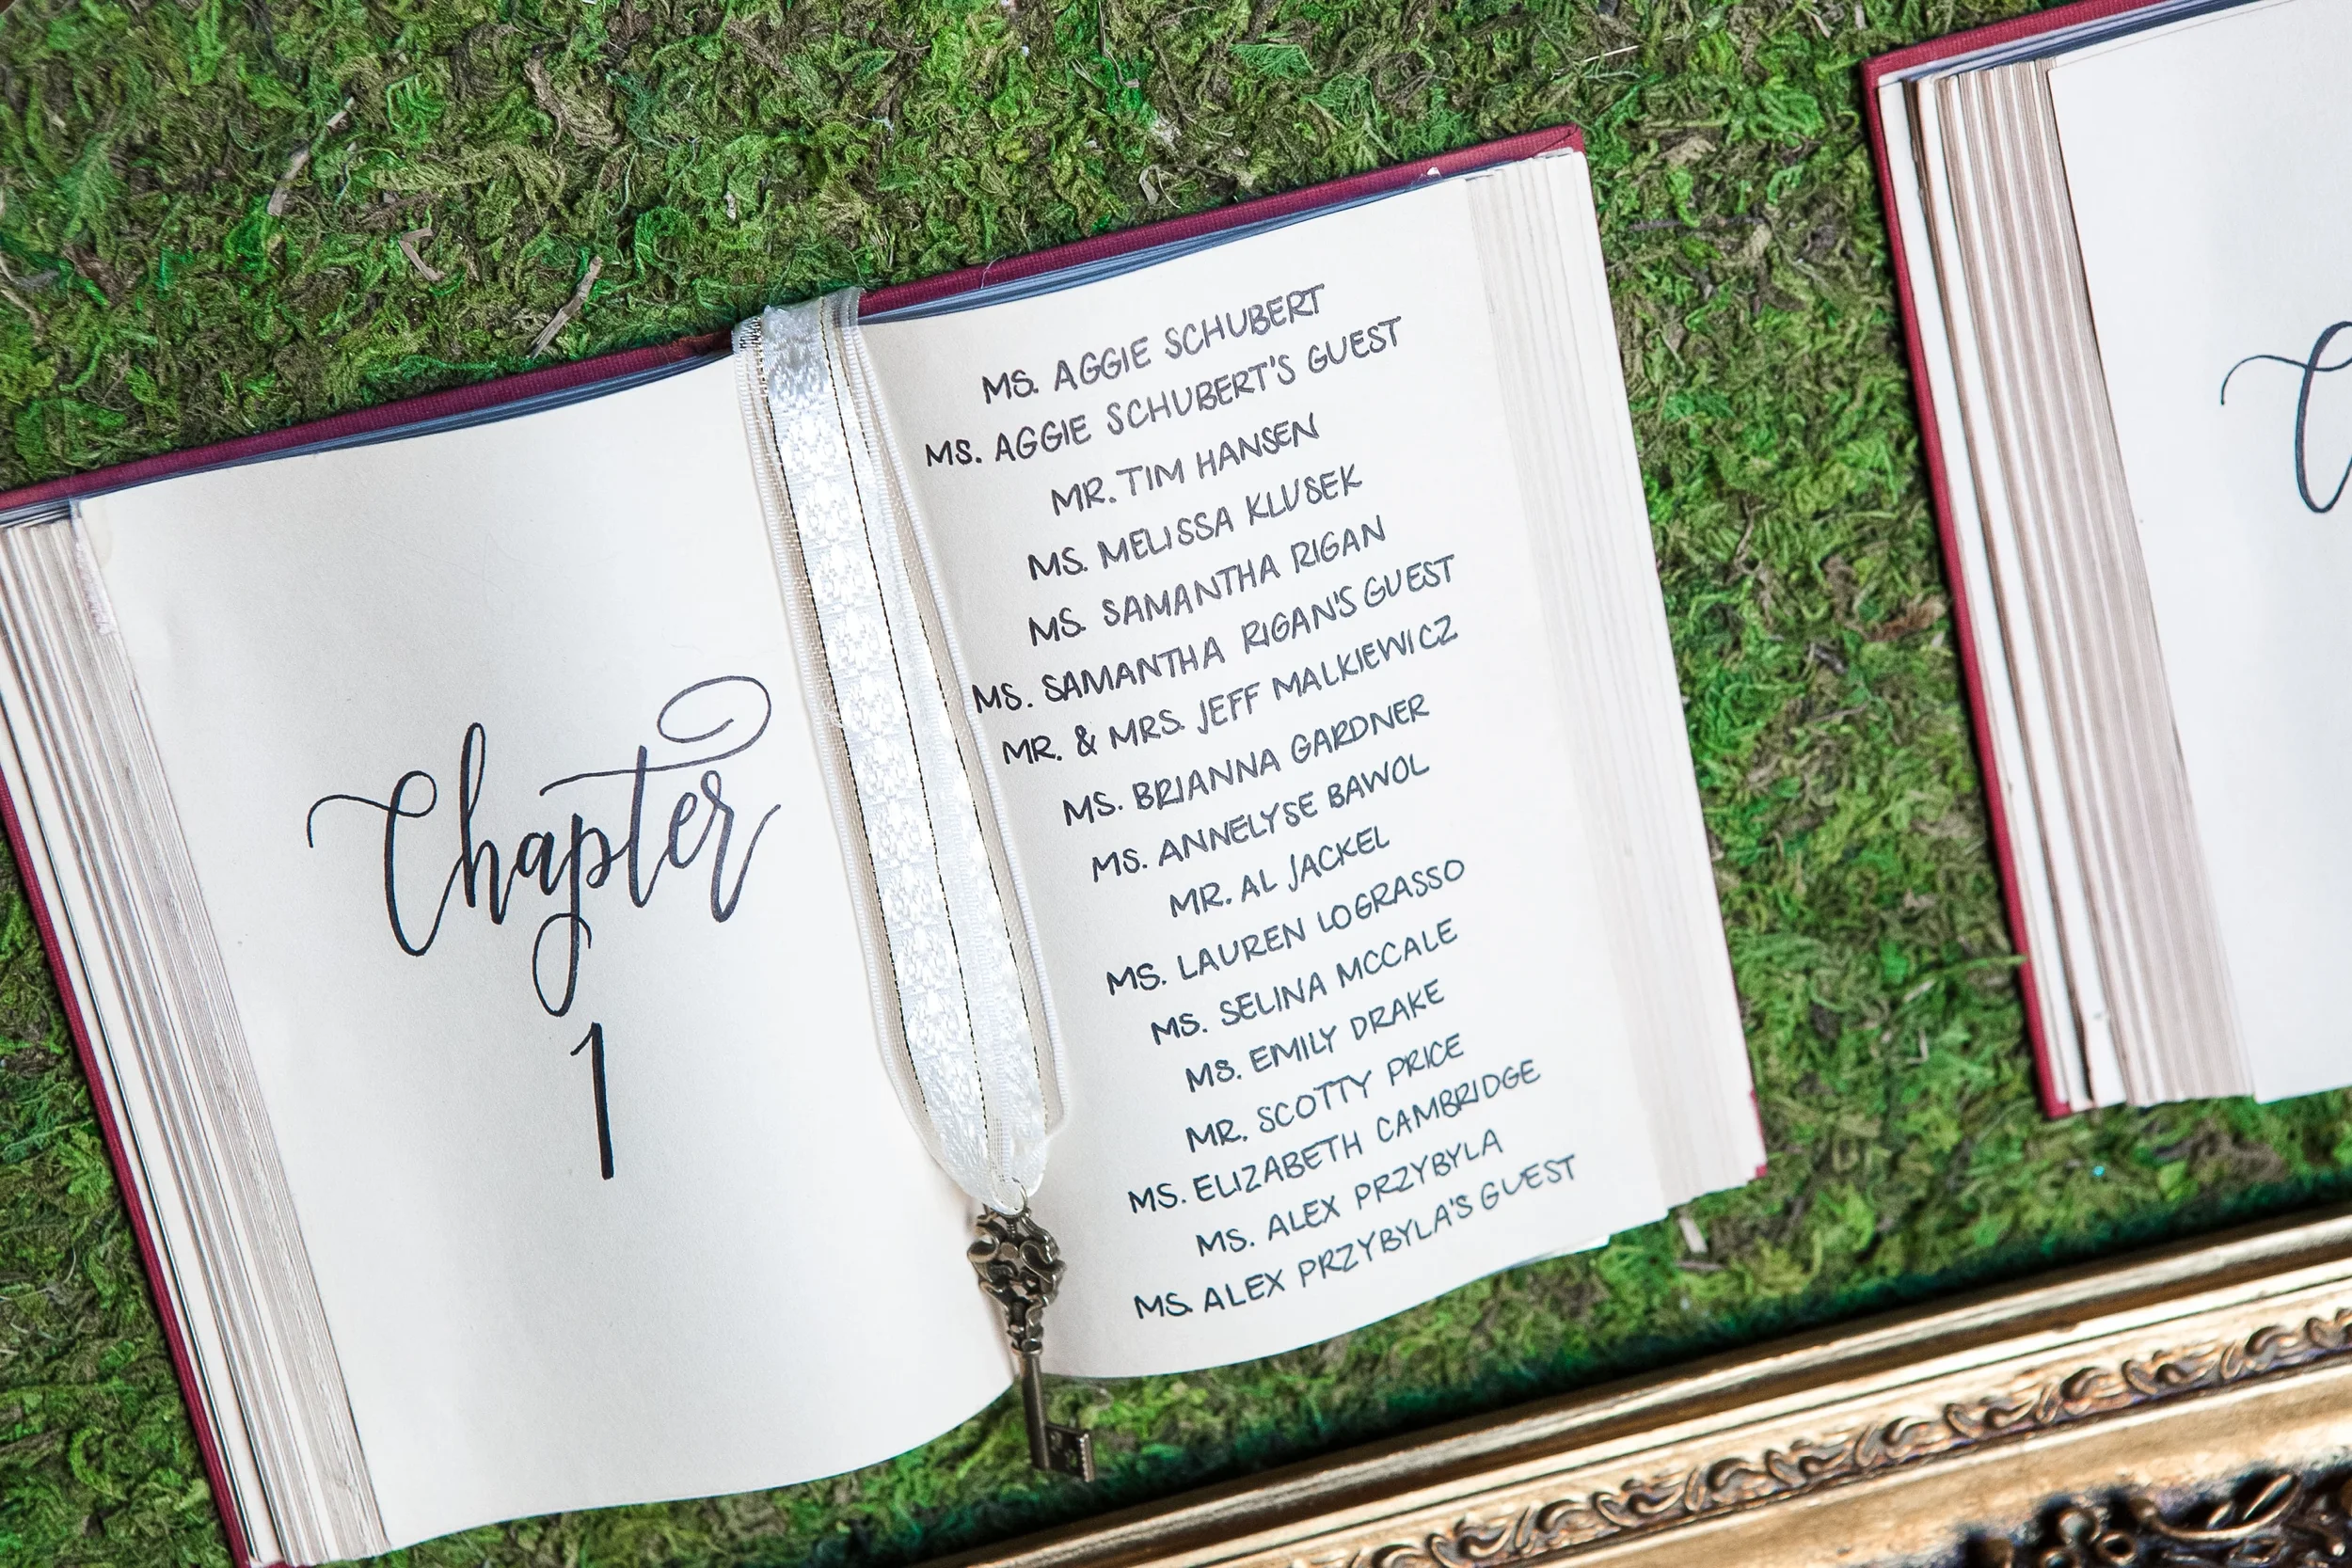 Chapter
1
MS. AGGIE SCHUBERT
MS. AGGIE SCHUBERT'S GUEST
MR. TIM HANSEN
MS. MELISSA KLUSEK
MS. SAMANTHA RIGAN
MS. SAMANTHA RIGAN'S GUEST
MR. & MRS. JEFF MALKIEWICZ
MS. BRIANNA GARDNER
MS. ANNELYSE BAWOL
MR. AL JACKEL
MS. LAUREN LOGRASSO
MS. SELINA MCCALE
MS. EMILY DRAKE
MR. SCOTTY PRICE
MS. ELIZABETH CAMBRIDGE
MS. ALEX PRZYBYLA
MS. ALEX PRZYBYLA'S GUEST